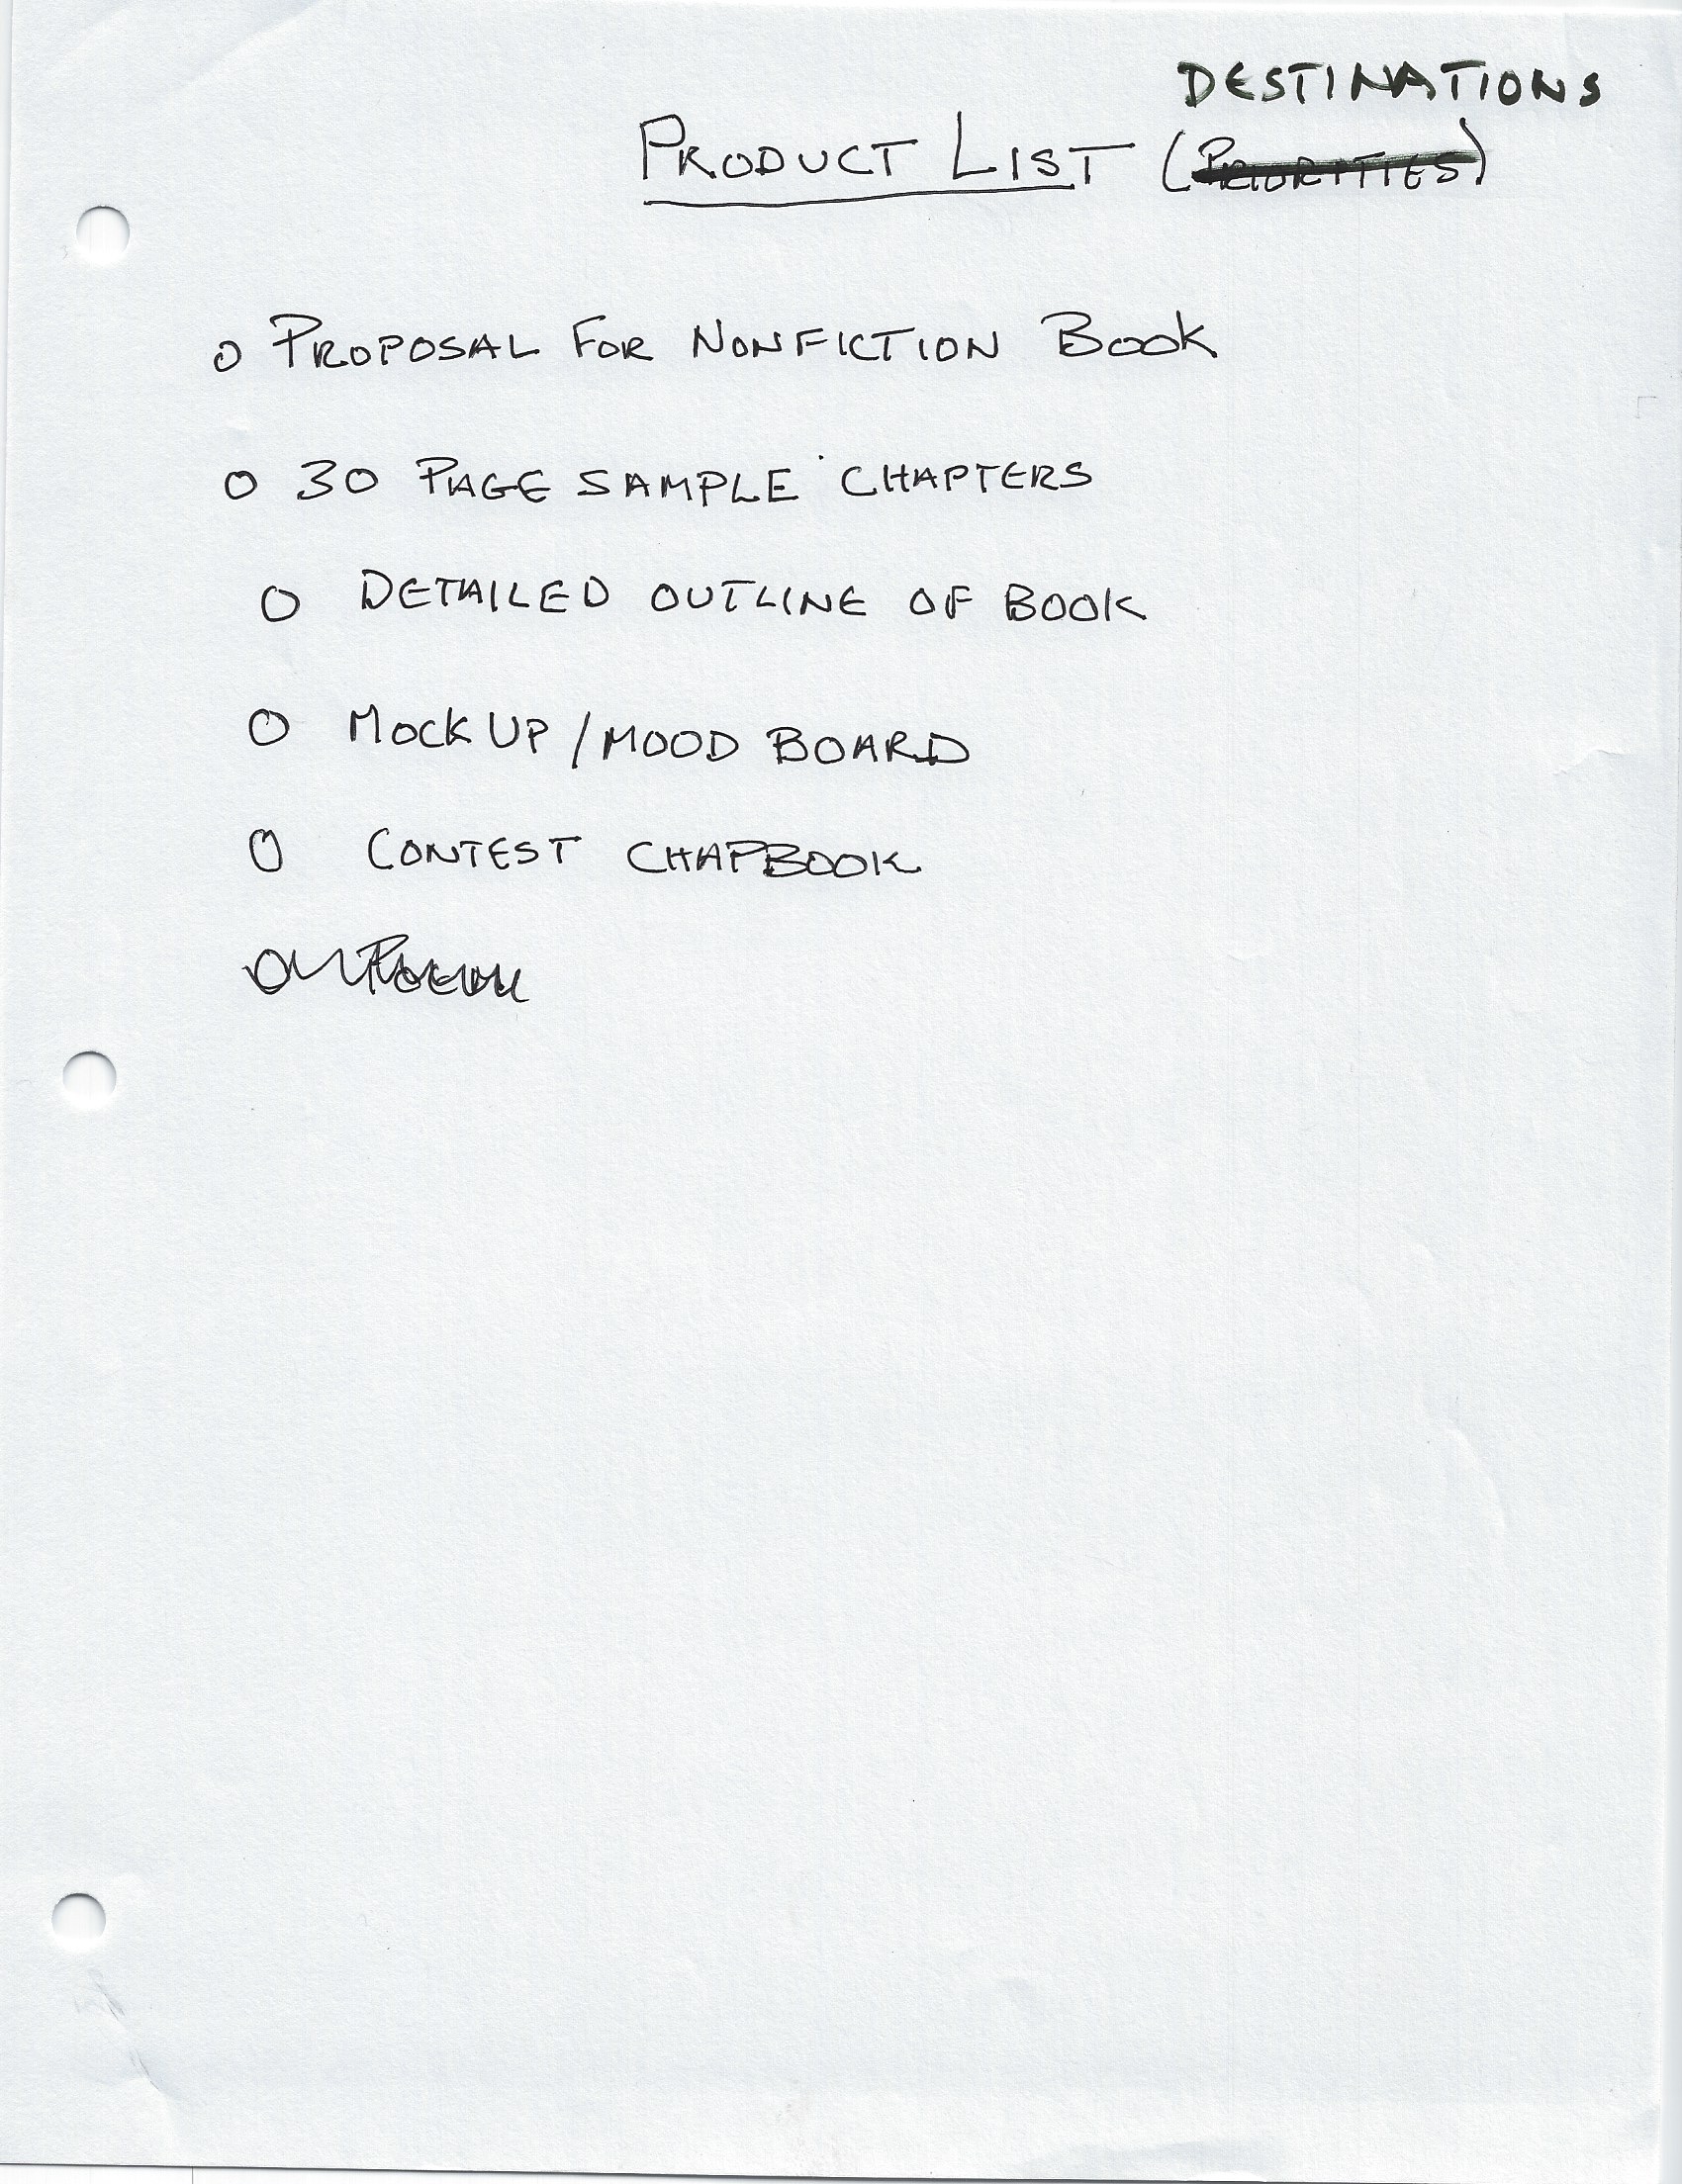 DESTINATIONS
PRODUCT LIST (PRIORITIES)
O PROPOSAL FOR NONFICTION BOOK
O 30 PAGE SAMPLE CHAPTERS
O DETAILED OUTLINE OF BOOK
O MOCK UP / MOOD BOARD
O CONTEST CHAPBOOK